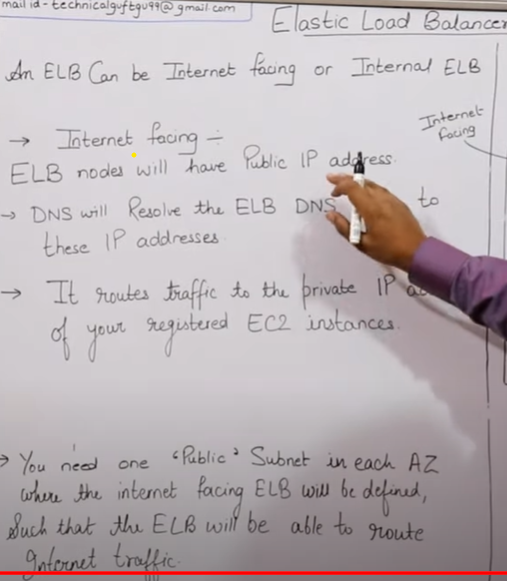 mail id - technicalguftgu99@gmail.com
Elastic Load Balancer
An ELB Can be Internet facing or Internal ELB
Internet
facing
→ Internet facing ÷
ELB nodes will have Public IP address.
→ DNS will Resolve the ELB DNS to
these IP addresses.
→ It routes traffic to the private IP
of your registered EC2 instances.
→ You need one "Public" Subnet in each AZ
where the internet facing ELB will be defined,
Such that the ELB will be able to route
Internet traffic.